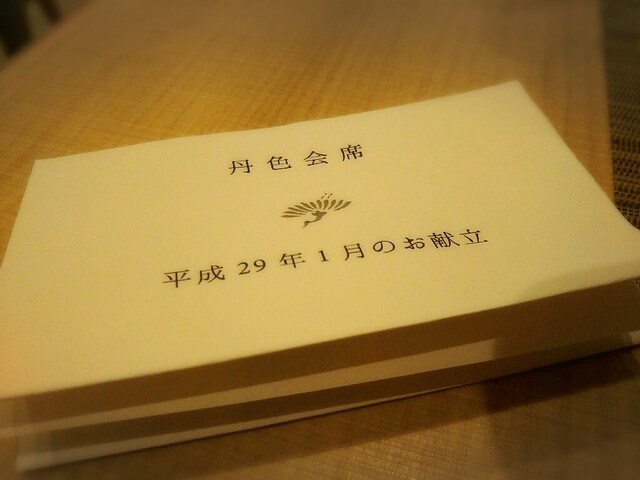 丹色会席
平成29年1月のお献立